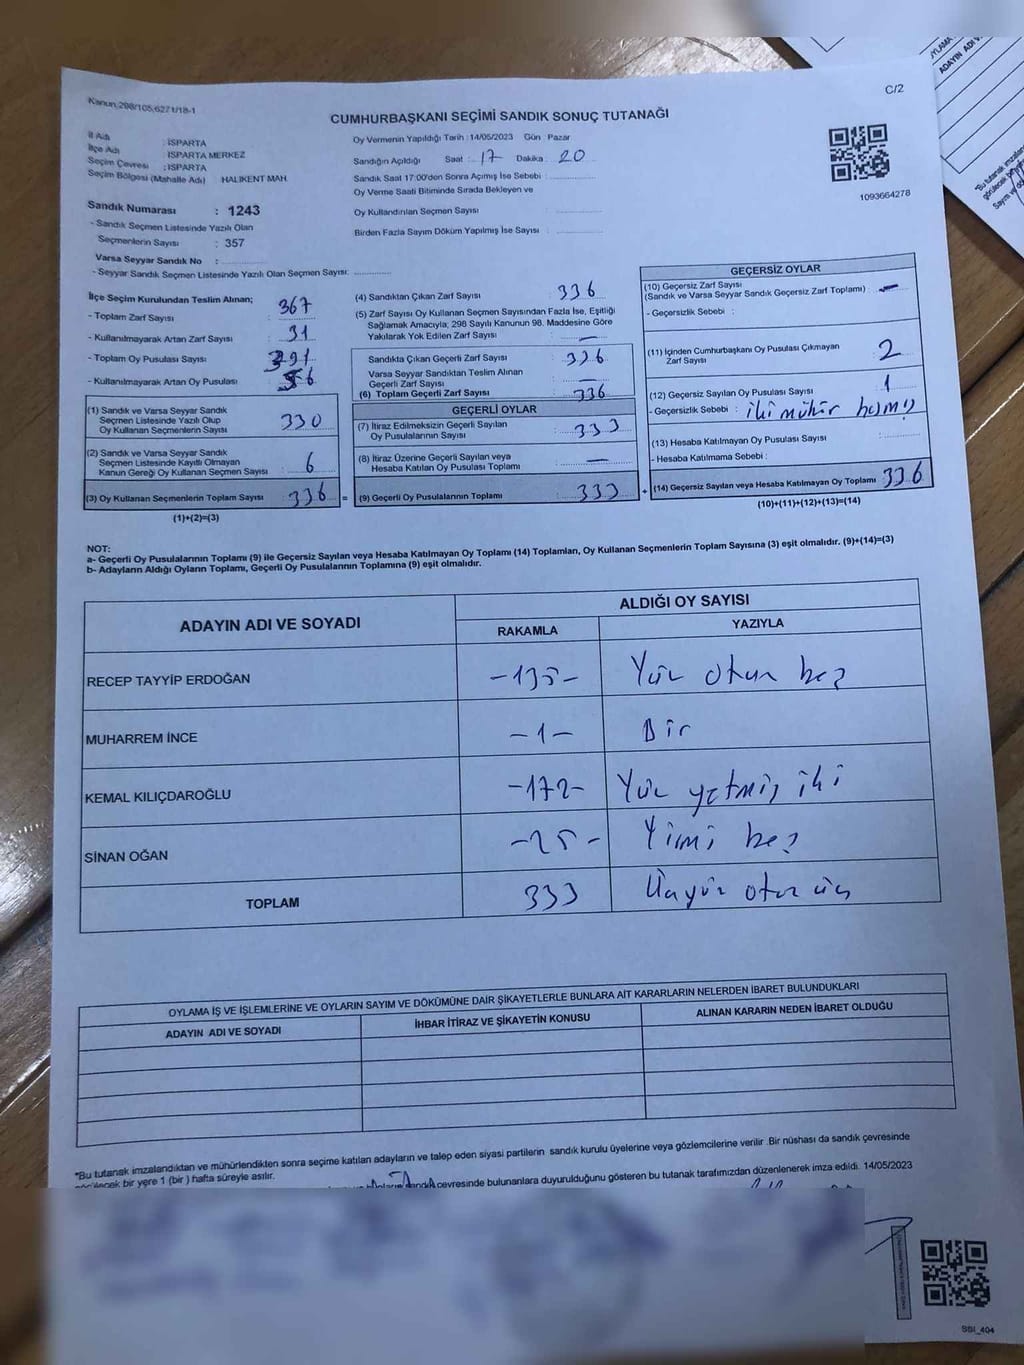 C/2
OYLAMA
ADAYIN ADI V
Kanun:298/105,6271/18-1
CUMHURBAŞKANI SEÇİMİ SANDIK SONUÇ TUTANAĞI
İl Adı : ISPARTA
İlçe Adı : ISPARTA MERKEZ
Seçim Çevresi : ISPARTA
Seçim Bölgesi (Mahalle Adı) HALIKENT MAH.
Oy Vermenin Yapıldığı Tarih : 14/05/2023 Gün : Pazar
Sandığın Açıldığı Saat : 17 Dakika : 20
Sandık Saat 17:00'den Sonra Açımış İse Sebebi :
Oy Verme Saati Bitiminde Sırada Bekleyen ve
Oy Kullandırılan Seçmen Sayısı :
Birden Fazla Sayım Döküm Yapılmış İse Sayısı :
1093664278
Sandık Numarası : 1243
- Sandık Seçmen Listesinde Yazılı Olan
Seçmenlerin Sayısı : 357
Varsa Seyyar Sandık No :
- Seyyar Sandık Seçmen Listesinde Yazılı Olan Seçmen Sayısı:
İlçe Seçim Kurulundan Teslim Alınan;
- Toplam Zarf Sayısı : 367
- Kullanılmayarak Artan Zarf Sayısı : 31
- Toplam Oy Pusulası Sayısı : 391
- Kullanılmayarak Artan Oy Pusulası :
(1) Sandık ve Varsa Seyyar Sandık
Seçmen Listesinde Yazılı Olup
Oy Kullanan Seçmenlerin Sayısı : 330
(2) Sandık ve Varsa Seyyar Sandık
Seçmen Listesinde Kayıtlı Olmayan
Kanun Gereği Oy Kullanan Seçmen Sayısı : 6
(3) Oy Kullanan Seçmenlerin Toplam Sayısı : 336 =
(1)+(2)=(3)
(4) Sandıktan Çıkan Zarf Sayısı : 336
(5) Zarf Sayısı Oy Kullanan Seçmen Sayısından Fazla İse, Eşitliği
Sağlamak Amacıyla; 298 Sayılı Kanunun 98. Maddesine Göre
Yakılarak Yok Edilen Zarf Sayısı : —
Sandıkta Çıkan Geçerli Zarf Sayısı : 336
Varsa Seyyar Sandıktan Teslim Alınan
Geçerli Zarf Sayısı : —
(6) Toplam Geçerli Zarf Sayısı : 336
GEÇERLİ OYLAR
(7) İtiraz Edilmeksizin Geçerli Sayılan
Oy Pusulalarının Sayısı : 333
(8) İtiraz Üzerine Geçerli Sayılan veya
Hesaba Katılan Oy Pusulası Toplamı : —
(9) Geçerli Oy Pusulalarının Toplamı : 333 +
GEÇERSİZ OYLAR
(10) Geçersiz Zarf Sayısı
(Sandık ve Varsa Seyyar Sandık Geçersiz Zarf Toplamı) : —
- Geçersizlik Sebebi :
(11) İçinden Cumhurbaşkanı Oy Pusulası Çıkmayan
Zarf Sayısı : 2
(12) Geçersiz Sayılan Oy Pusulası Sayısı : 1
- Geçersizlik Sebebi : iki mühür basmış
(13) Hesaba Katılmayan Oy Pusulası Sayısı :
- Hesaba Katılmama Sebebi :
(14) Geçersiz Sayılan veya Hesaba Katılmayan Oy Toplamı : 336
(10)+(11)+(12)+(13)=(14)
NOT:
a- Geçerli Oy Pusulalarının Toplamı (9) ile Geçersiz Sayılan veya Hesaba Katılmayan Oy Toplamı (14) Toplamları, Oy Kullanan Seçmenlerin Toplam Sayısına (3) eşit olmalıdır. (9)+(14)=(3)
b- Adayların Aldığı Oyların Toplamı, Geçerli Oy Pusulalarının Toplamına (9) eşit olmalıdır.
ADAYIN ADI VE SOYADI
ALDIĞI OY SAYISI
RAKAMLA YAZIYLA
RECEP TAYYİP ERDOĞAN -135- Yüz otuz beş
MUHARREM İNCE -1- Bir
KEMAL KILIÇDAROĞLU -172- Yüz yetmiş iki
SİNAN OĞAN -25- Yirmi beş
TOPLAM 333 Üçyüz otuz üç
OYLAMA İŞ VE İŞLEMLERİNE VE OYLARIN SAYIM VE DÖKÜMÜNE DAİR ŞİKAYETLERLE BUNLARA AİT KARARLARIN NELERDEN İBARET BULUNDUKLARI
ADAYIN ADI VE SOYADI
İHBAR İTİRAZ VE ŞİKAYETİN KONUSU
ALINAN KARARIN NEDEN İBARET OLDUĞU
*Bu tutanak imzalandıktan ve mühürlendikten sonra seçime katılan adayların ve talep eden siyasi partilerin sandık kurulu üyelerine veya gözlemcilerine verilir .Bir nüshası da sandık çevresinde
görülecek bir yere 1 (bir ) hafta süreyle asılır.
çevresinde bulunanlara duyurulduğunu gösteren bu tutanak tarafımızdan düzenlenerek imza edildi. 14/05/2023
SBİ_404